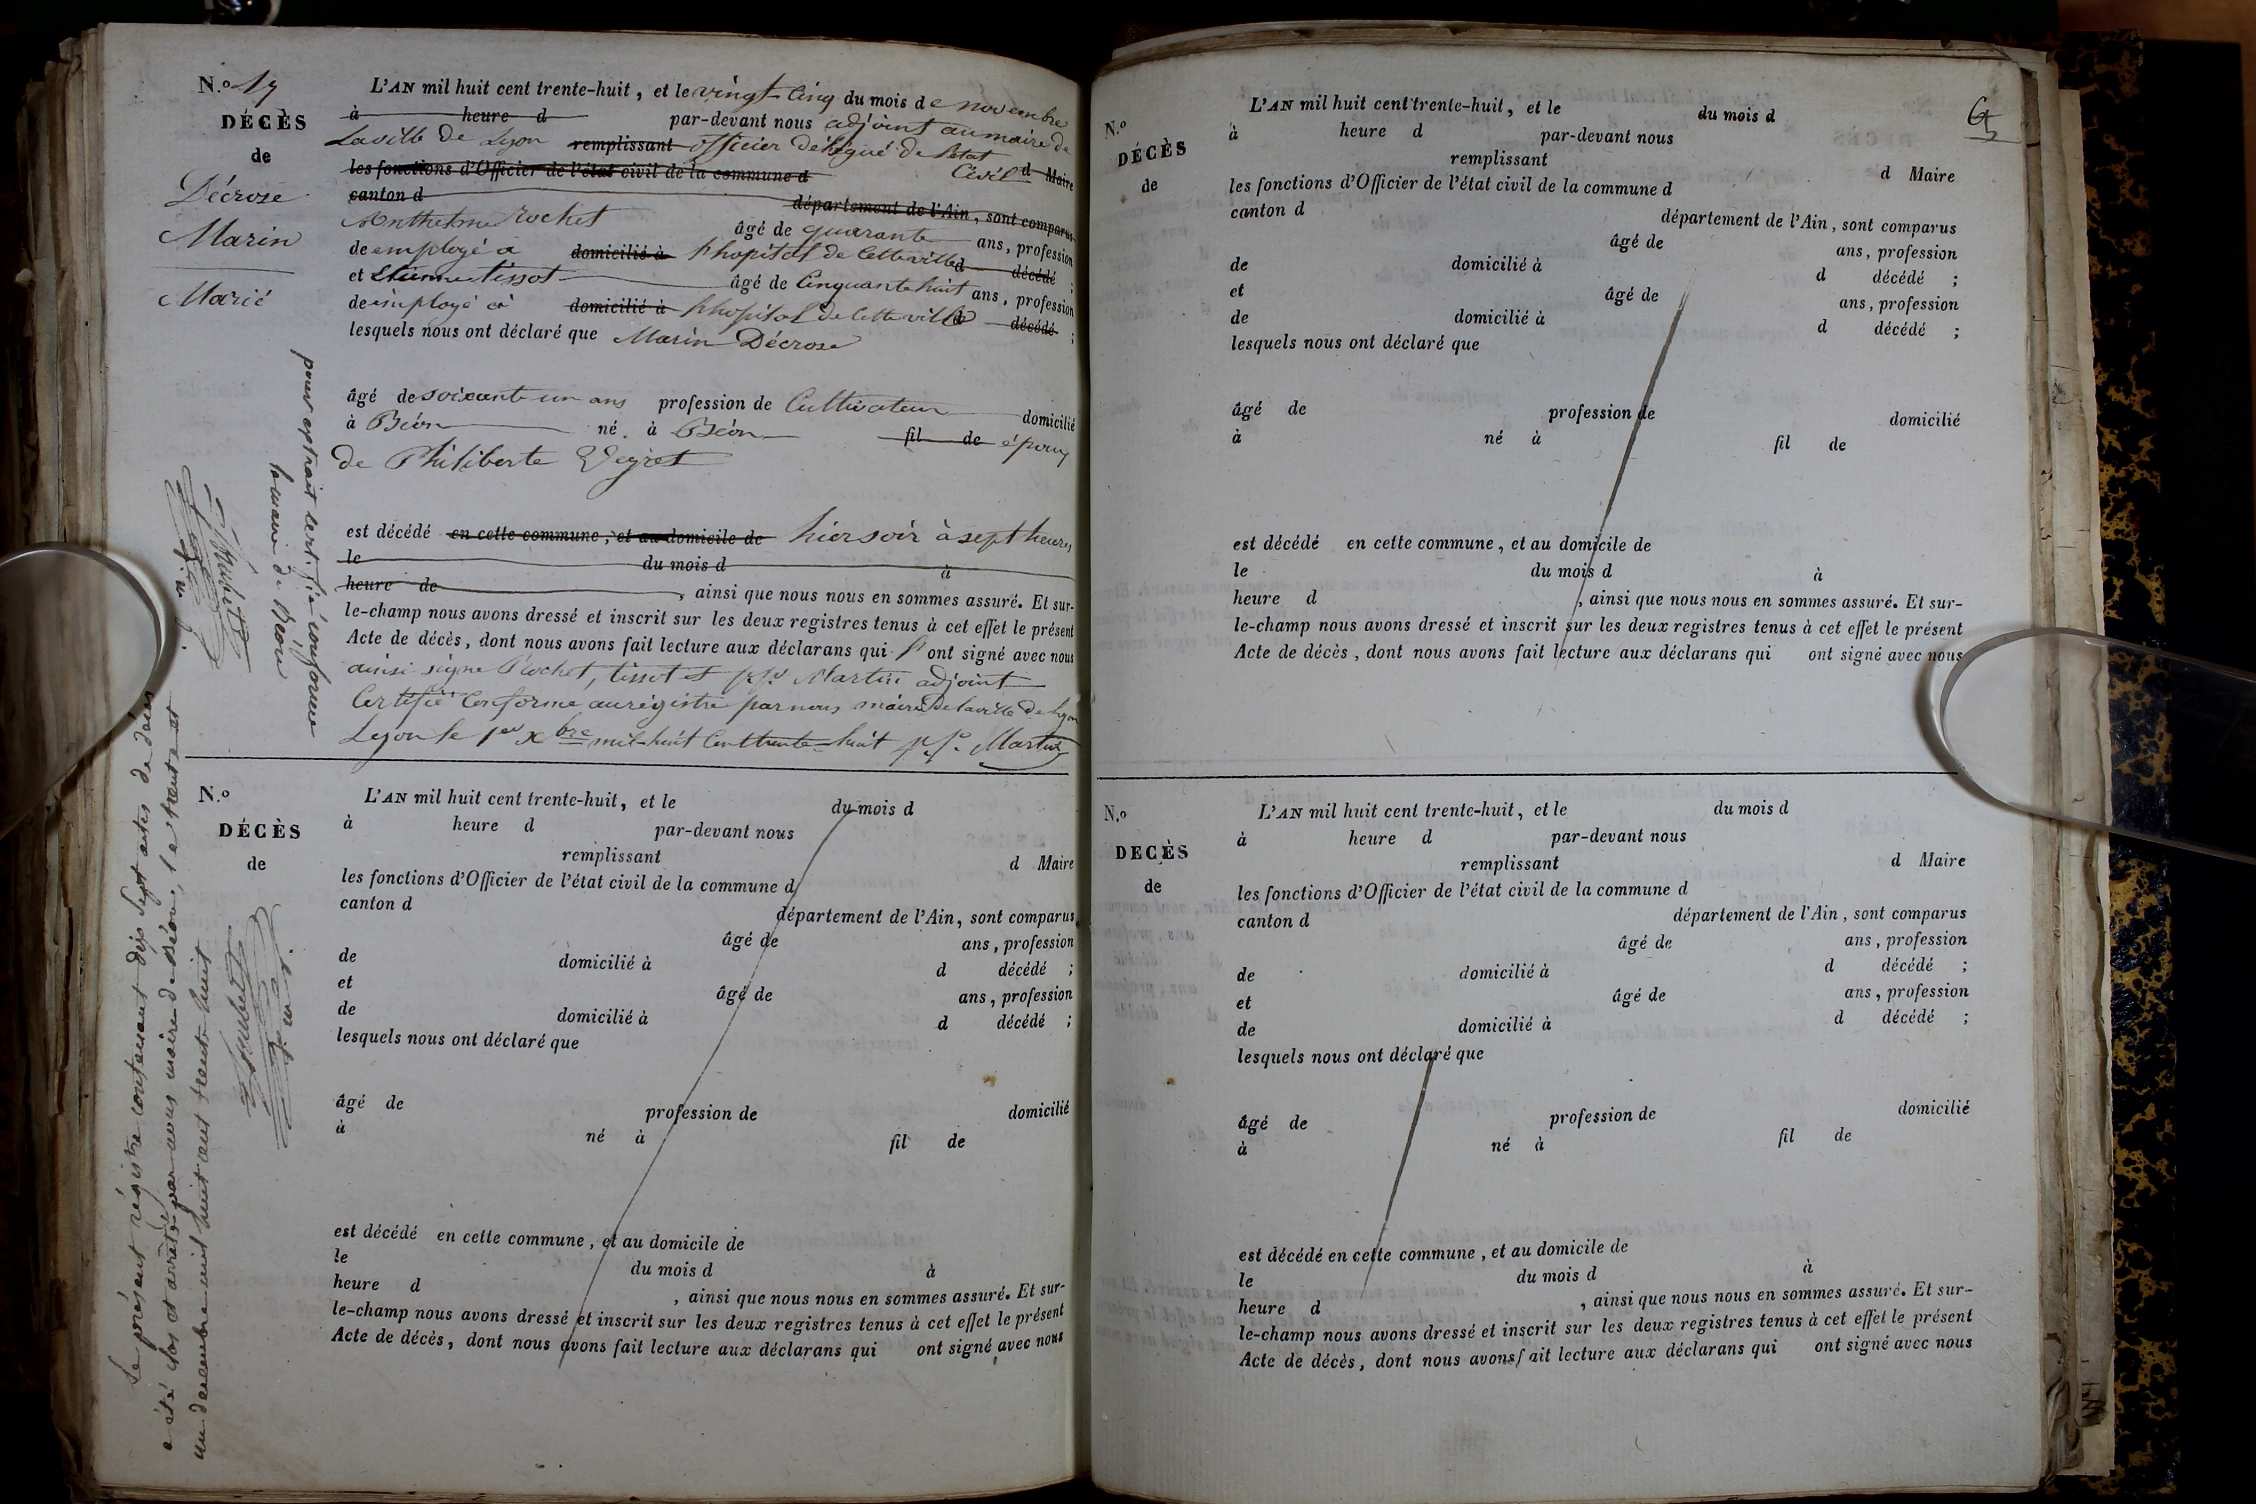 N.o 17
DÉCÈS
de
Décrose
Marin
Marié
L'AN mil huit cent trente-huit, et le vingt-cinq du mois de novembre
à heure d par-devant nous adjoint au maire de
la ville de Lyon remplissant officier délégué de l'état civil d Maire
les fonctions d'Officier de l'état civil de la commune d
canton d département de l'Ain, sont comparus
Anthelme Rochet âgé de quarante ans, profession
de employé à domicilié à l'hopital de cette ville d décédé ;
et Etienne tissot âgé de Cinquante huit ans, profession
de employé à domicilié à l'hopital de cette ville d décédé ;
lesquels nous ont déclaré que Marin Décrose
âgé de soixante un ans profession de Cultivateur domicilié
à Béon né à Béon fil de époux
de Philiberte Veyret
est décédé en cette commune, et au domicile de hier soir à sept heures
le du mois d à
heure de , ainsi que nous nous en sommes assuré. Et sur-
le-champ nous avons dressé et inscrit sur les deux registres tenus à cet effet le présent
Acte de décès, dont nous avons fait lecture aux déclarans qui l' ont signé avec nous
ainsi signé Rochet, tissot et Martin adjoint
Certifié Conforme au régistre par nous maire de la ville de Lyon
Lyon le 1er Xbre mil-huit Cent trente-huit Martin
pour extrait certifié conforme
le maire de Béon
N.o
DÉCÈS
de
L'AN mil huit cent trente-huit, et le du mois d
à heure d par-devant nous
remplissant d Maire
les fonctions d'Officier de l'état civil de la commune d
canton d département de l'Ain, sont comparus
âgé de ans, profession
de domicilié à d décédé ;
et âgé de ans, profession
de domicilié à d décédé ;
lesquels nous ont déclaré que
âgé de profession de domicilié
à né à fil de
est décédé en cette commune, et au domicile de
le du mois d à
heure d , ainsi que nous nous en sommes assuré. Et sur-
le-champ nous avons dressé et inscrit sur les deux registres tenus à cet effet le présent
Acte de décès, dont nous avons fait lecture aux déclarans qui ont signé avec nous
Le présent régistre contenant dix sept actes de décès
a été clos et arrêté par nous maire de Béon, le trente et
un decembre mil huit cent trent huit
N.o
DÉCÈS
de
L'AN mil huit cent trente-huit, et le du mois d
à heure d par-devant nous
remplissant d Maire
les fonctions d'Officier de l'état civil de la commune d
canton d département de l'Ain, sont comparus
âgé de ans, profession
de domicilié à d décédé ;
et âgé de ans, profession
de domicilié à d décédé ;
lesquels nous ont déclaré que
âgé de profession de domicilié
à né à fil de
est décédé en cette commune, et au domicile de
le du mois d à
heure d , ainsi que nous nous en sommes assuré. Et sur-
le-champ nous avons dressé et inscrit sur les deux registres tenus à cet effet le présent
Acte de décès, dont nous avons fait lecture aux déclarans qui ont signé avec nous
N.o
DECÈS
de
L'AN mil huit cent trente-huit, et le du mois d
à heure d par-devant nous
remplissant d Maire
les fonctions d'Officier de l'état civil de la commune d
canton d département de l'Ain, sont comparus
âgé de ans, profession
de domicilié à d décédé ;
et âgé de ans, profession
de domicilié à d décédé ;
lesquels nous ont déclaré que
âgé de profession de domicilié
à né à fil de
est décédé en cette commune, et au domicile de
le du mois d à
heure d , ainsi que nous nous en sommes assuré. Et sur-
le-champ nous avons dressé et inscrit sur les deux registres tenus à cet effet le présent
Acte de décès, dont nous avons fait lecture aux déclarans qui ont signé avec nous